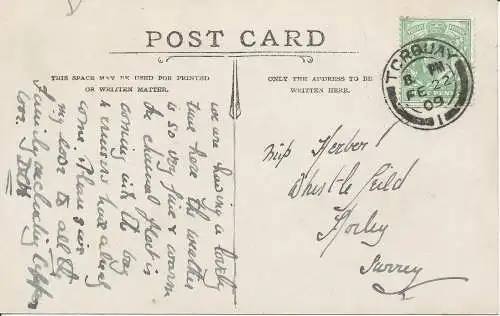 POST CARD
THIS SPACE MAY BE USED FOR PRINTED
OR WRITTEN MATTER.
ONLY THE ADDRESS TO BE
WRITTEN HERE.
TORQUAY
8 PM
FE 22
09
1
we are having a lovely
time here the weather
is so very fine & warm
the channel fleet is
coming into the bay
4 cruisers have already
come. Please give
my love to all the
Family including
Miss Herbert
Whistle Feild
Horley
Surrey